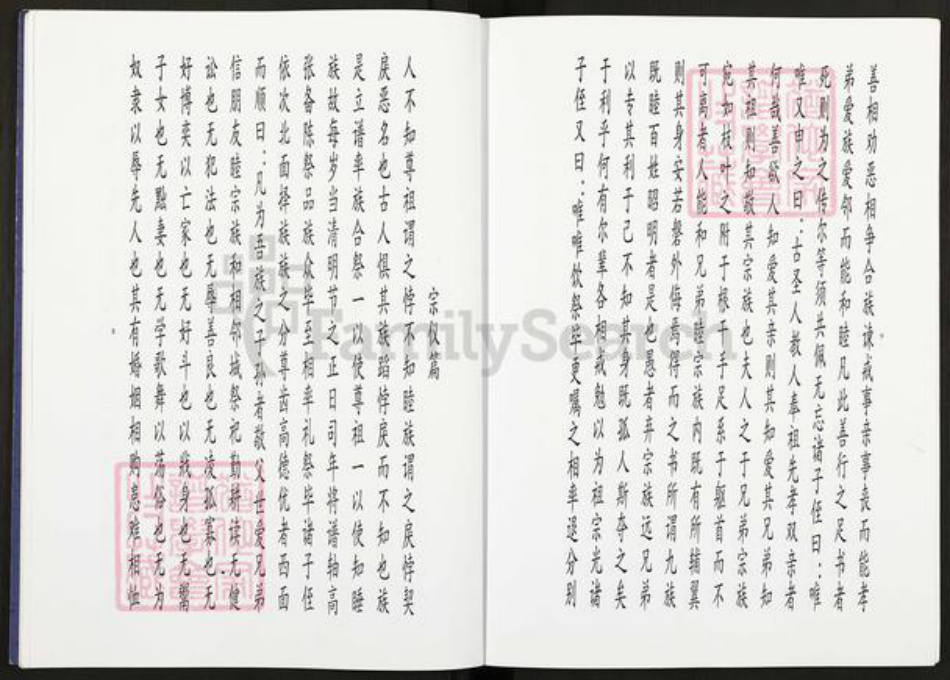 宗仪篇
人不知尊祖谓之悖不知睦族谓之戾悖契
戾恶名也古人惧其族蹈悖戾而不知也族
是立谱率族合祭一以使尊祖一以使知睡
族故每岁当清明节之正日司年将谱轴高
张备陈祭品族众毕至相率礼祭毕诸子侄
依次北面择族族之分尊齿高德优者西面
而顺曰：凡为吾族之子孙者敬父世爱兄弟
信朋友睦宗族和相邻域祭祀勤耕读无健
讼也无犯法也无辱善良也无凌孤寡也无
好博奕以亡家也无好斗也以戕身也无鬻
子女也无黜妻也无学歌舞以荡俗也无为
奴隶以辱先人也其有婚姻相购患难相恤
善相劝恶相争合族谏戒事亲事丧而能孝
弟爱族爱邻而能和睦凡此善行之足书者
死则为之传尔等须共佩无忘诸子侄曰：唯
唯又申之曰：古圣人教人奉祖先孝双亲者
何哉善欲人知爱其亲则其知爱其兄弟知
其祖则知敬其宗族也夫人之于兄弟宗族
宛如枝叶之附于根干手足系于躯首而不
可离者人能和兄弟睦宗族内既有所辅翼
则其身安若磐外侮焉得而之书所谓九族
既睦百姓昭明者是也愚者弃宗族远兄弟
以专其利于己不知其身既孤人斯夺之矣
于利乎何有尔辈各相戒勉以为祖宗光诸
子侄又曰：唯唯饮祭毕更嘱之相率退分别